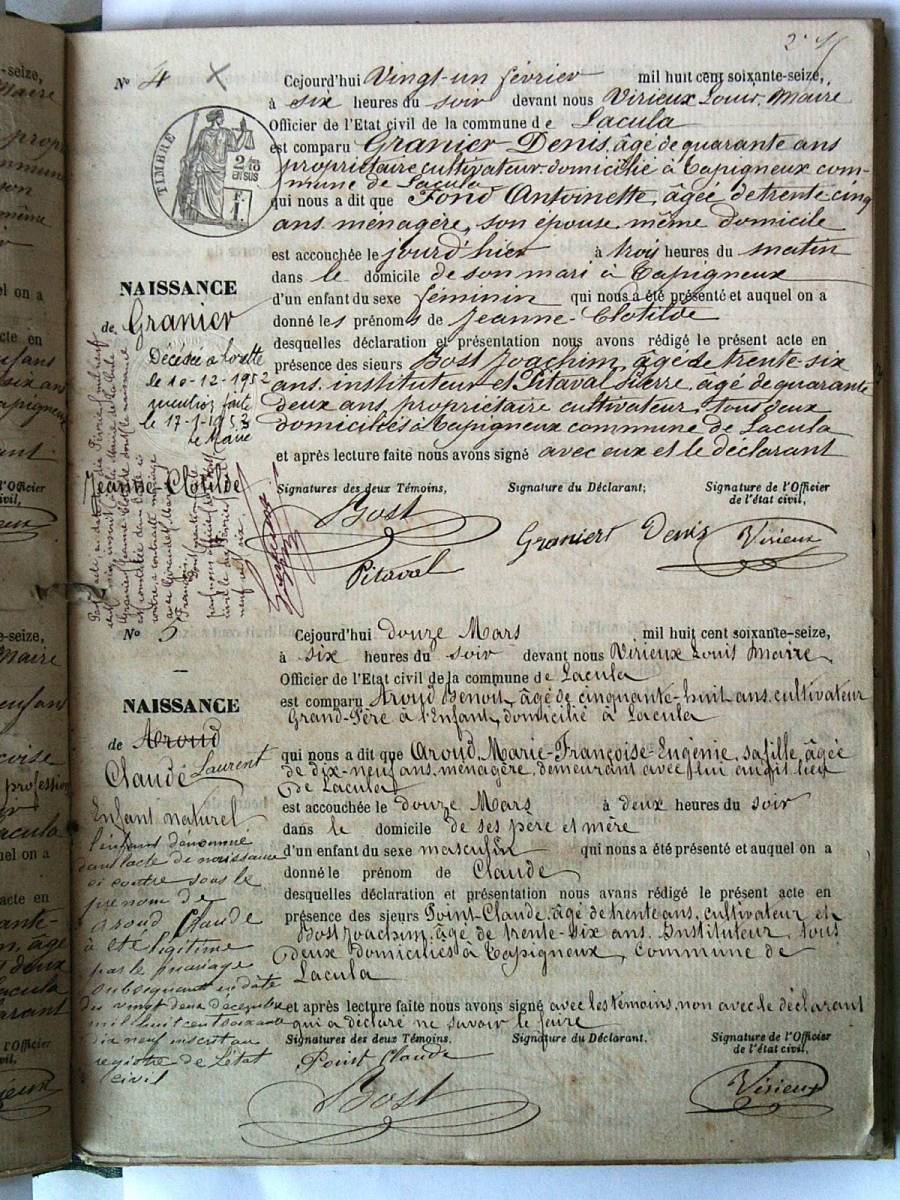 Nº 4 X
Cejourd'hui Vingt-un février mil huit cent soixante-seize,
à six heures du soir devant nous Virieux Louis, Maire
Officier de l'Etat civil de la commune de Lacula
est comparu Granier Denis, âgé de quarante ans
propriétaire cultivateur domicilié à Tapigneux com-
mune de Lacula
qui nous a dit que Fond Antoinette, âgée de trente cinq
ans ménagère, son épouse même domicile
est accouchée le jourd'hier à trois heures du matin
dans le domicile de son mari à Tapigneux
d'un enfant du sexe féminin qui nous a été présenté et auquel on a
donné les prénoms de Jeanne-Clotilde
desquelles déclaration et présentation nous avons rédigé le présent acte en
présence des sieurs Bost Joachim, âgé de trente-six
ans, instituteur et Pitaval Pierre, âgé de quarante
deux ans propriétaire cultivateur, tous deux
domiciliés à Tapigneux commune de Lacula
et après lecture faite nous avons signé avec eux et le déclarant
Signatures des deux Témoins, Signature du Déclarant; Signature de l'Officier
de l'état civil,
Bost
Pitaval
Granier Denis
Virieux
TIMBRE
2/10
EN SUS
NAISSANCE
de Granier
Jeanne Clotilde
Décédée à
le 10-12-1952
mention faite
le 17-1-1953
le Maire
Nº 5
Cejourd'hui douze Mars mil huit cent soixante-seize,
à six heures du soir devant nous Virieux Louis Maire
Officier de l'Etat civil de la commune de Lacula
est comparu Aroud Benoit, âgé de cinquante-huit ans, cultivateur
Grand-Père à l'Enfant, domicilié à Lacula
qui nous a dit que Aroud, Marie-Françoise-Eugénie, sa fille, âgée
de dix-neuf ans, ménagère, demeurant avec lui audit lieu
de Lacula
est accouchée le douze Mars à deux heures du soir
dans le domicile de ses père et mère
d'un enfant du sexe masculin qui nous a été présenté et auquel on a
donné le prénom de Claude
desquelles déclaration et présentation nous avons rédigé le présent acte en
présence des sieurs Point-Claude, âgé de trente ans, cultivateur et
Bost Joachim, âgé de trente-six ans, Instituteur, tous
deux domiciliés à Tapigneux, commune de
Lacula
et après lecture faite nous avons signé avec les témoins, non avec le déclarant
qui a déclaré ne savoir le faire
Signatures des deux Témoins, Signature du Déclarant, Signature de l'Officier
de l'état civil,
Point Claude
Bost
Virieux
NAISSANCE
de Aroud
Claude Laurent
Enfant naturel
l'enfant dénommé
dans l'acte de naissance
ci contre sous le
prénom de
Aroud Claude
a été légitimé
par le mariage
subséquent en date
du vingt deux décembre
mil huit cent soixante
dix neuf inscrit au
registre de l'état
civil